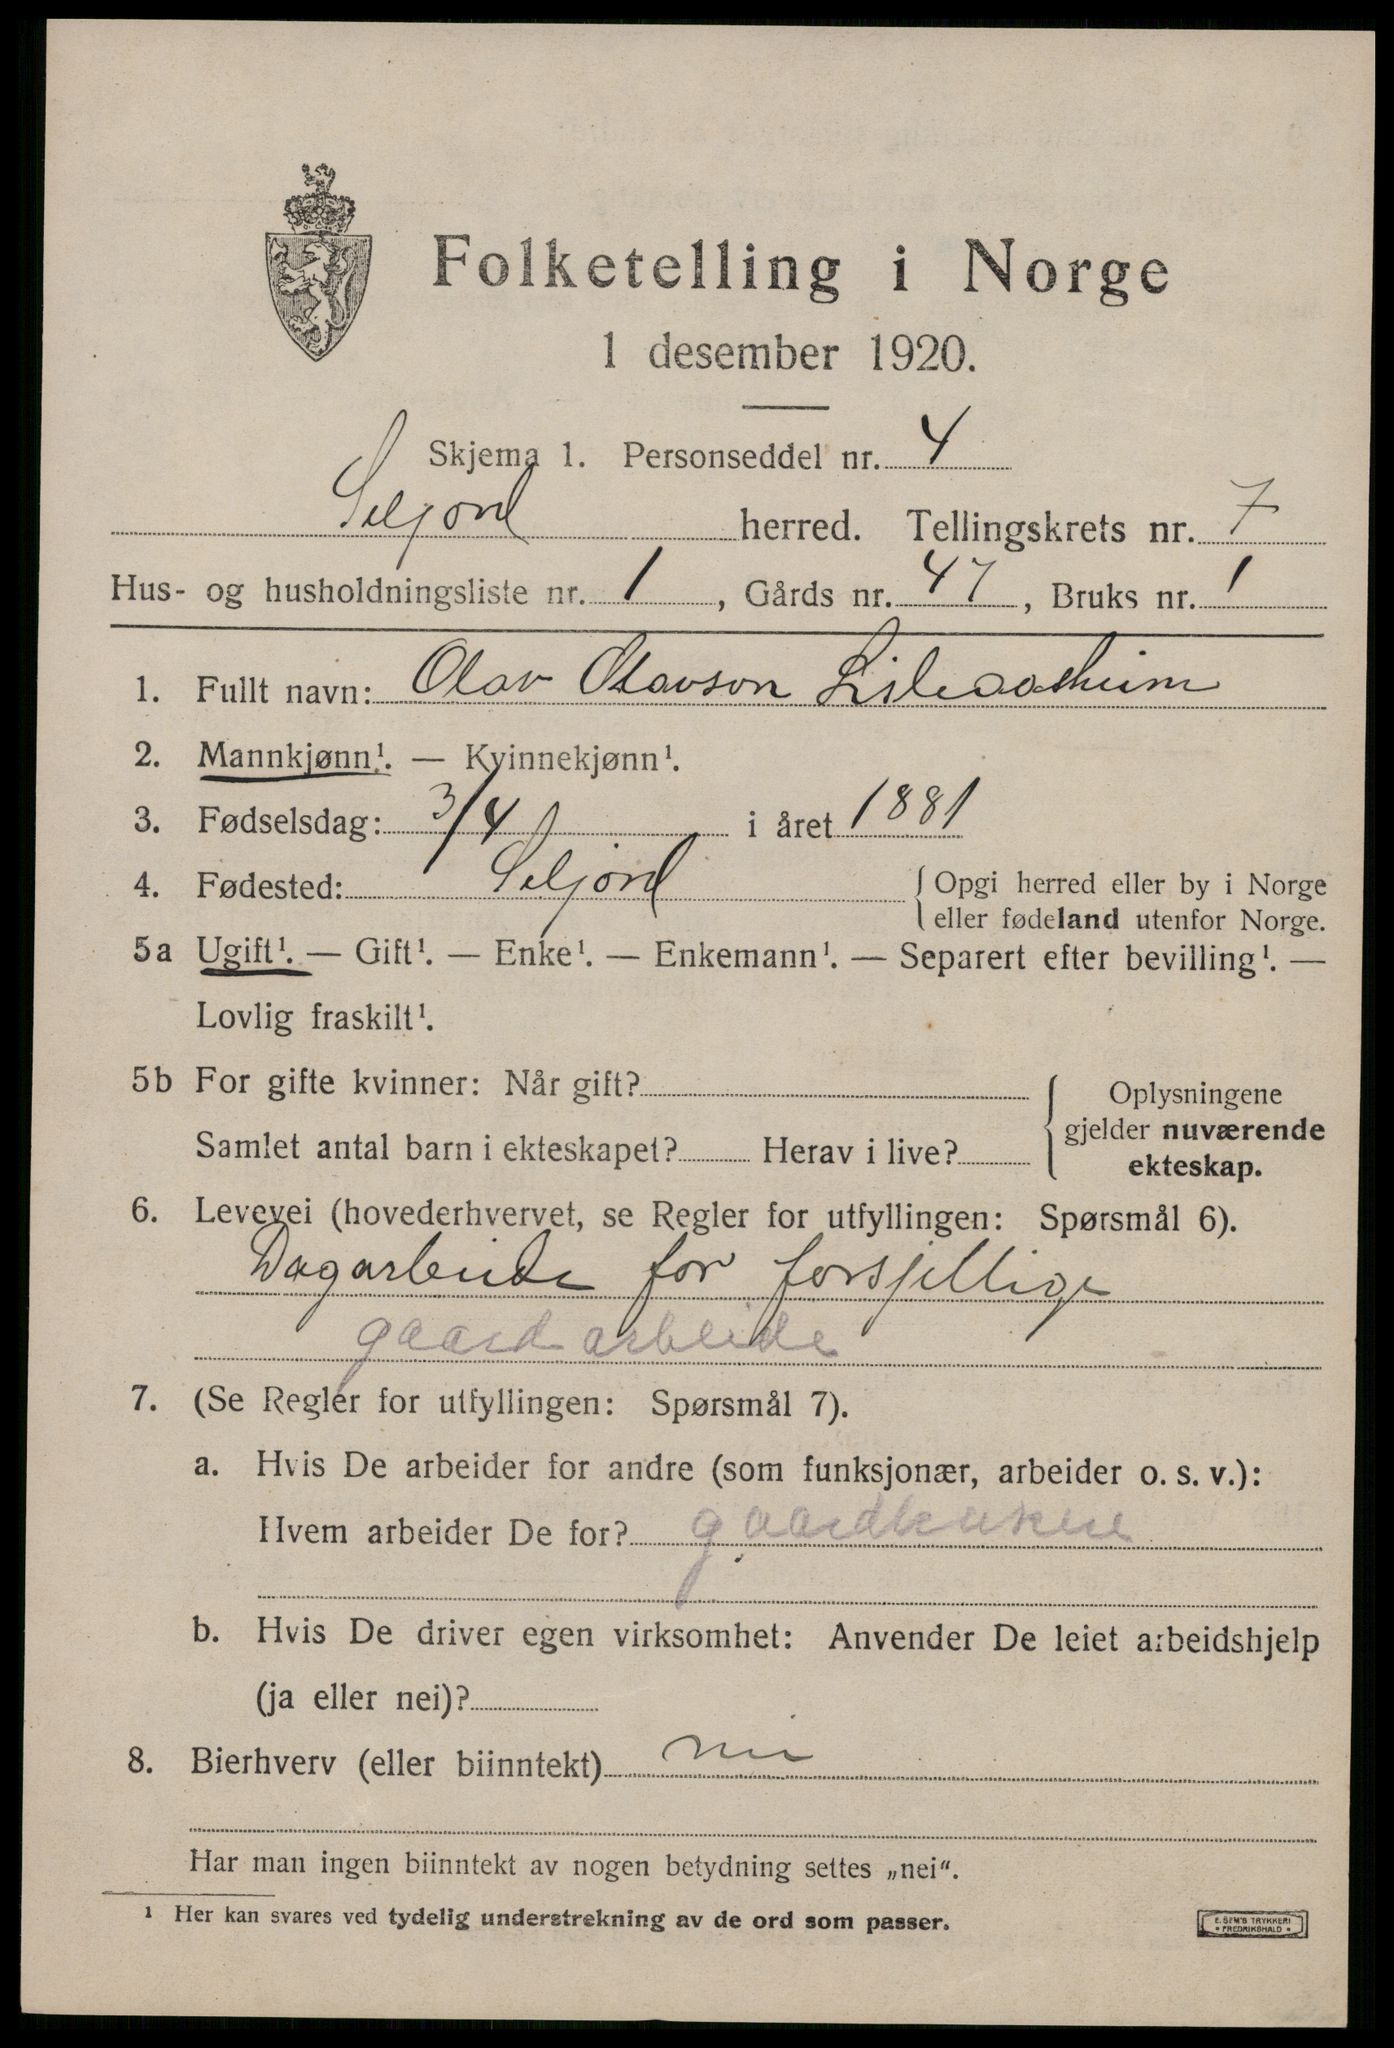 Folketelling i Norge
1 desember 1920.
Skjema 1. Personseddel nr. 4
Seljord herred. Tellingskrets nr. 7
Hus- og husholdningsliste nr. 1, Gårds nr. 47, Bruks nr. 1
1. Fullt navn: Olav Olavson
2. Mannkjønn¹. — Kvinnekjønn¹.
3. Fødselsdag: 3/4 i året 1881
4. Fødested: Seljord { Opgi herred eller by i Norge
eller fødeland utenfor Norge.
5a Ugift¹. — Gift¹. — Enke¹. — Enkemann¹. — Separert efter bevilling¹. —
Lovlig fraskilt¹.
5b For gifte kvinner: Når gift? { Oplysningene
gjelder nuværende
Samlet antal barn i ekteskapet? Herav i live? ekteskap.
6. Levevei (hovederhvervet, se Regler for utfyllingen: Spørsmål 6).
Dagarbeide for forsjellige
gaardarbeide
7. (Se Regler for utfyllingen: Spørsmål 7).
a. Hvis De arbeider for andre (som funksjonær, arbeider o. s. v.):
Hvem arbeider De for? gaardbrukere
b. Hvis De driver egen virksomhet: Anvender De leiet arbeidshjelp
(ja eller nei)?
8. Bierhverv (eller biinntekt) nei
Har man ingen biinntekt av nogen betydning settes „nei“.
¹ Her kan svares ved tydelig understrekning av de ord som passer.
E. SEM'S TRYKKERI
• FREDRIKSHALD •